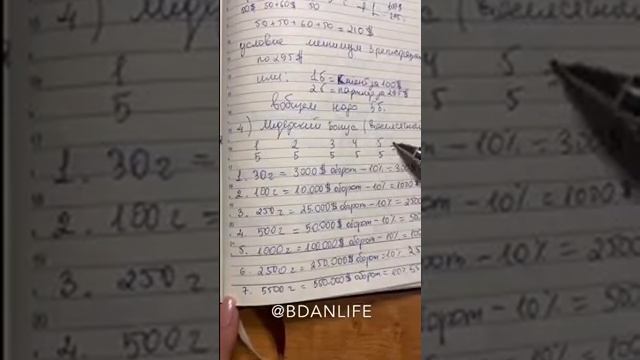 50$ 50+60$ 50
50+50+60+50 = 210$
условие минимум 3 регистрации
по 295$
или: 1б = клиент за 100$
2б = партнер за 295$
вобщем надо 5б.
4) Лидерский бонус (
1 2 3 4 5
5 5 5 5 5
1. 30г = 3000$ оборот - 10% = 300
2. 100г = 10.000$ оборот - 10% = 1000$
3. 250г = 25.000$ оборот - 10% = 2500
4. 500г = 50.000$ оборот - 10% =
5. 1000г = 100.000$ оборот - 10% =
6. 2500г = 250.000$ оборот = 10%
7. 5500г = 550.000$ оборот = 10%
@BDANLIFE